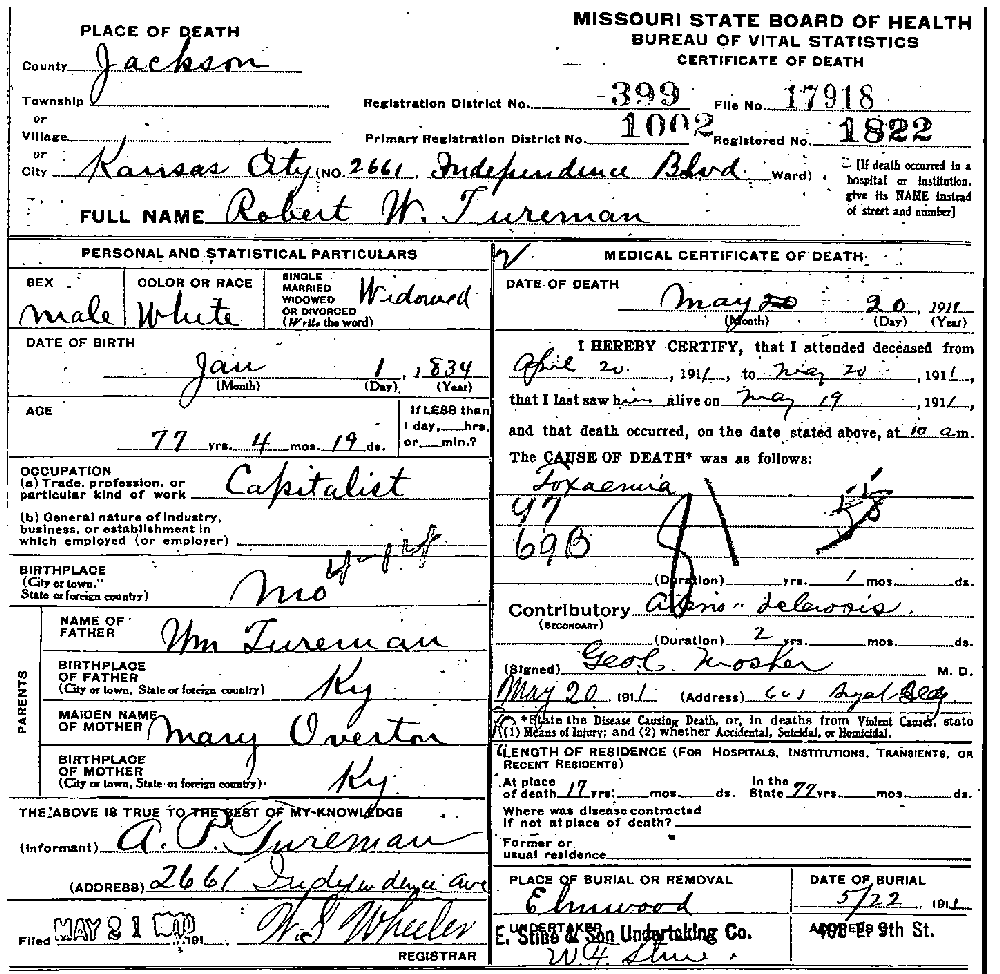 MISSOURI STATE BOARD OF HEALTH
BUREAU OF VITAL STATISTICS
CERTIFICATE OF DEATH
PLACE OF DEATH
County Jackson
Township
or
Village
or
City Kansas City (NO. 2661 Independence Blvd. Ward)
Registration District No. 399 File No. 17918
Primary Registration District No. 1002 Registered No. 1822
[If death occurred in a
hospital or institution,
give its NAME instead
of street and number]
FULL NAME Robert W. Tureman
PERSONAL AND STATISTICAL PARTICULARS
SEX male
COLOR OR RACE White
SINGLE
MARRIED
WIDOWED
OR DIVORCED
(Write the word)
Widowed
DATE OF BIRTH
Jan 1, 1834
(Month) (Day) (Year)
AGE
77 yrs. 4 mos. 19 ds.
If LESS than
1 day, hrs.
or min.?
OCCUPATION
(a) Trade, profession, or
particular kind of work Capitalist
(b) General nature of industry,
business, or establishment in
which employed (or employer)
BIRTHPLACE
(City or town,
State or foreign country) Mo
PARENTS
NAME OF
FATHER Wm Tureman
BIRTHPLACE
OF FATHER
(City or town, State or foreign country) Ky
MAIDEN NAME
OF MOTHER Mary Overton
BIRTHPLACE
OF MOTHER
(City or town, State or foreign country) Ky.
THE ABOVE IS TRUE TO THE BEST OF MY KNOWLEDGE
(Informant) A. P. Tureman
(ADDRESS) 2661 Independence Ave
Filed MAY 21 191
W. S. Wheeler
REGISTRAR
MEDICAL CERTIFICATE OF DEATH
DATE OF DEATH
May 20 20, 1911
(Month) (Day) (Year)
I HEREBY CERTIFY, that I attended deceased from
April 20, 1911, to May 20, 1911,
that I last saw him alive on May 19, 1911,
and that death occurred, on the date stated above, at 10 a m.
The CAUSE OF DEATH* was as follows:
Toxaemia
97
69B
(Duration) yrs. 1 mos. ds.
Contributory Arterio-Sclerosis.
(SECONDARY)
(Duration) 2 yrs. mos. ds.
(Signed) Geo C. Mosher M. D.
May 20 1911 (Address) Bldg
*State the Disease Causing Death, or, in deaths from Violent Causes, state
(1) Means of Injury; and (2) whether Accidental, Suicidal, or Homicidal.
LENGTH OF RESIDENCE (FOR HOSPITALS, INSTITUTIONS, TRANSIENTS, OR
RECENT RESIDENTS)
At place
of death 17 yrs. mos. ds. In the
State 77 yrs. mos. ds.
Where was disease contracted
if not at place of death?
Former or
usual residence
PLACE OF BURIAL OR REMOVAL
Elmwood
DATE OF BURIAL
5/22 1911
UNDERTAKER
E. Stine & Son Undertaking Co.
W. H. Stine.
ADDRESS
E. 9th St.